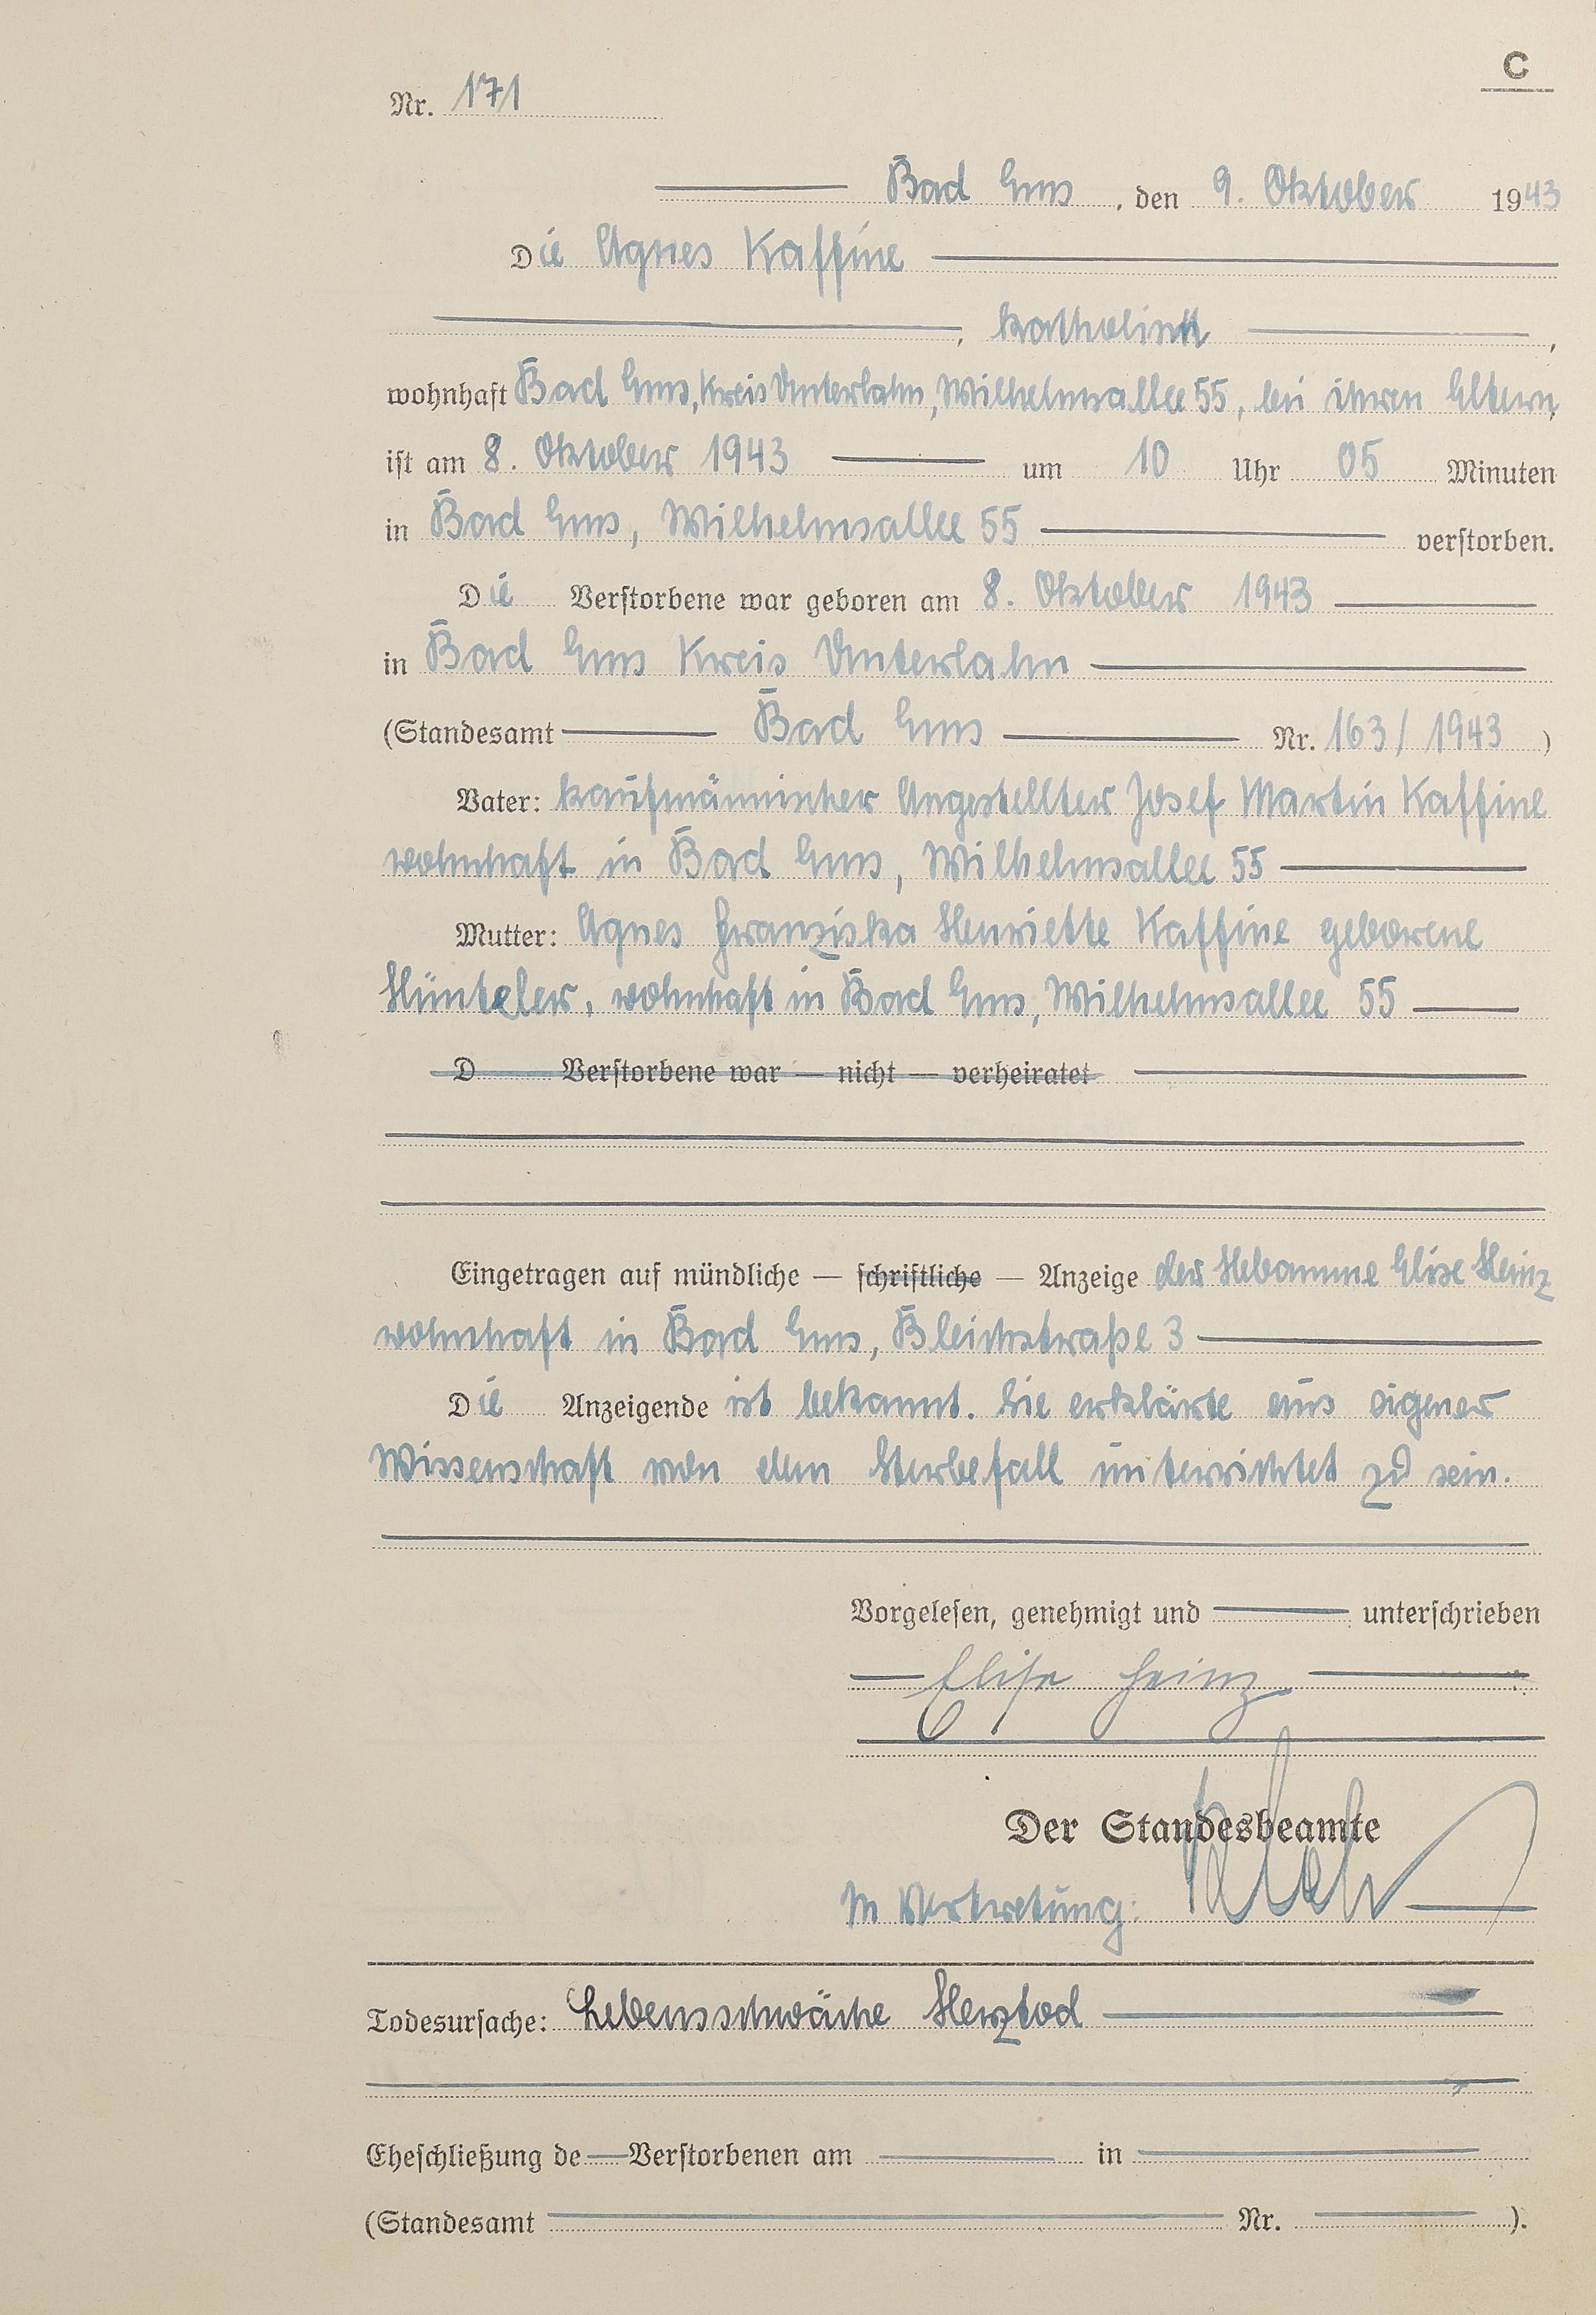 C
Nr. 171
Bad Ems, den 9. Oktober 1943
Die Agnes Kaffine
, katholisch,
wohnhaft Bad Ems, Kreis Unterlahn, Wilhelmsallee 55, bei ihren Eltern,
ist am 8. Oktober 1943 um 10 Uhr 05 Minuten
in Bad Ems, Wilhelmsallee 55 verstorben.
Die Verstorbene war geboren am 8. Oktober 1943
in Bad Ems Kreis Unterlahn
(Standesamt Bad Ems Nr. 163/1943)
Vater: kaufmännischer Angestellter Josef Martin Kaffine
wohnhaft in Bad Ems, Wilhelmsallee 55
Mutter: Agnes Franziska Henriette Kaffine geborene
wohnhaft in Bad Ems, Wilhelmsallee 55
D Verstorbene war — nicht — verheiratet
Eingetragen auf mündliche — schriftliche — Anzeige der Hebamme Elise Heinz
wohnhaft in Bad Ems, Bleichstraße 3
Die Anzeigende ist bekannt. Sie erklärte aus eigener
Wissenschaft von dem Sterbefall unterrichtet zu sein.
Vorgelesen, genehmigt und unterschrieben
Elise Heinz
Der Standesbeamte
In Vertretung:
Todesursache: Lebensschwäche Herztod
Eheschließung de Verstorbenen am in
(Standesamt Nr. ).